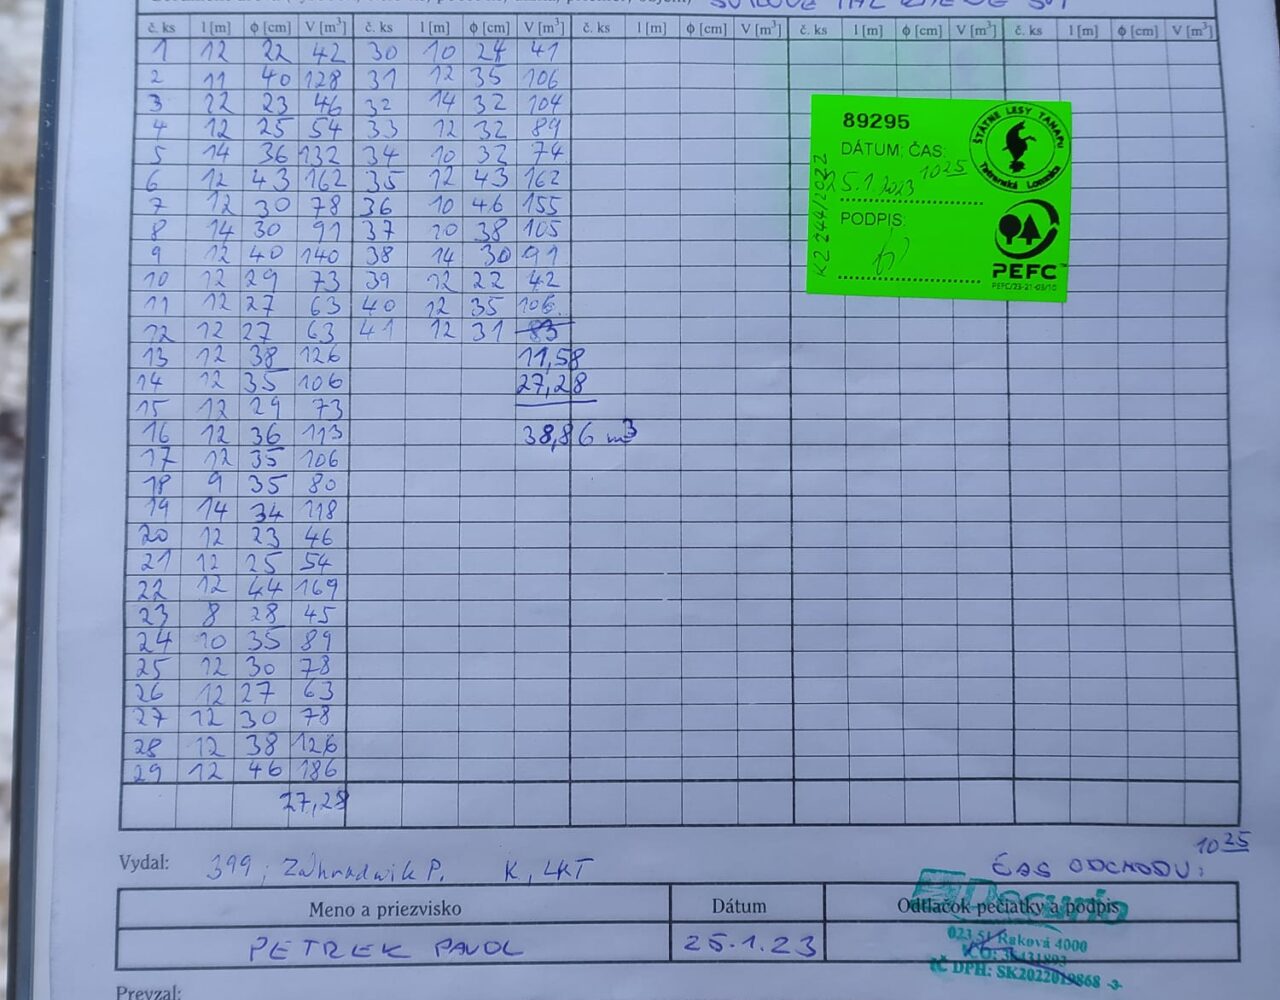 č. ks l [m] ϕ [cm] V [m³] č. ks l [m] ϕ [cm] V [m³] č. ks l [m] ϕ [cm] V [m³] č. ks l [m] ϕ [cm] V [m³] č. ks l [m] ϕ [cm] V [m³]
1 12 22 42 30 10 24 41
2 11 40 128 31 12 35 106
3 22 23 46 32 14 32 104
4 12 25 54 33 12 32 89
5 14 36 132 34 10 32 74
6 12 43 162 35 12 43 162
7 12 30 78 36 10 46 155
8 14 30 91 37 10 38 105
9 12 40 140 38 14 30 91
10 12 29 73 39 12 22 42
11 12 27 63 40 12 35 106
12 12 27 63 41 12 31 83
13 12 38 126 11,58
14 12 35 106 27,28
15 12 29 73
16 12 36 113 38,86 m3
17 12 35 106
18 9 35 80
19 14 34 118
20 12 23 46
21 12 25 54
22 12 44 169
23 8 28 45
24 10 35 89
25 12 30 78
26 12 27 63
27 12 30 78
28 12 38 126
29 12 46 186
27,28
89295
DÁTUM, ČAS:
25.1.2023 10 25
PODPIS:
K2 244/2022
ŠTÁTNE LESY TANAPU
Tatranská Lomnica
PEFC™
PEFC/23-21-03/10
Vydal: 399; Záhradník P. K, LKT
10 25
ČAS ODCHODU:
Meno a priezvisko Dátum Odtlačok pečiatky a podpis
PETREK PAVOL 25.1.23
023 51 Raková 4000
IČO:
IČ DPH: SK2022019868 -3-
Prevzal: